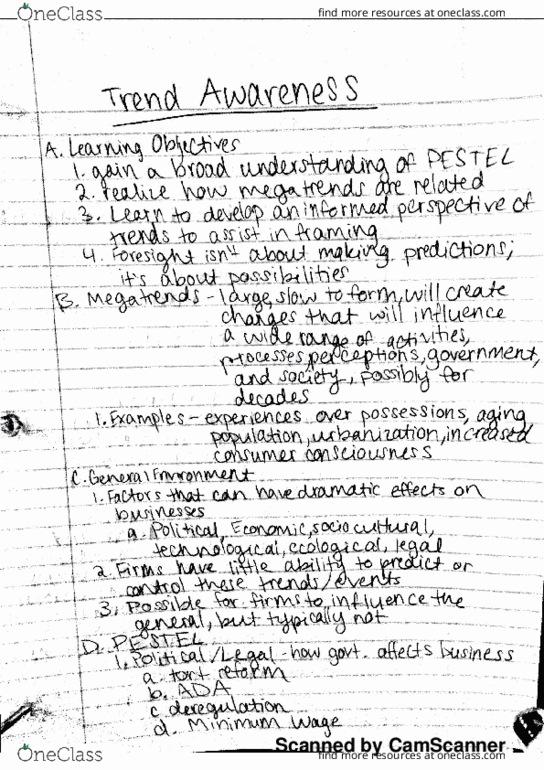 OneClass
find more resources at oneclass.com
Trend Awareness
A. Learning Objectives
1. gain a broad understanding of PESTEL
2. realize how megatrends are related
3. Learn to develop an informed perspective of
trends to assist in framing
4. Foresight isn't about making predictions;
it's about possibilities
B. Megatrends - large, slow to form, will create
changes that will influence
a wide range of activities,
processes, perceptions, government,
and society, possibly for
decades
1. Examples - experiences over possessions, aging
population, urbanization, increased
consumer consciousness
C. General Environment
1. Factors that can have dramatic effects on
businesses
a. Political, Economic, sociocultural,
technological, ecological, legal
2. Firms have little ability to predict or
control these trends/events
3. Possible for firms to influence the
general, but typically not
D. PESTEL
1. Political/Legal - how govt. affects business
a. tort reform
b. ADA
c. deregulation
d. Minimum wage
Scanned by CamScanner
OneClass
find more resources at oneclass.com